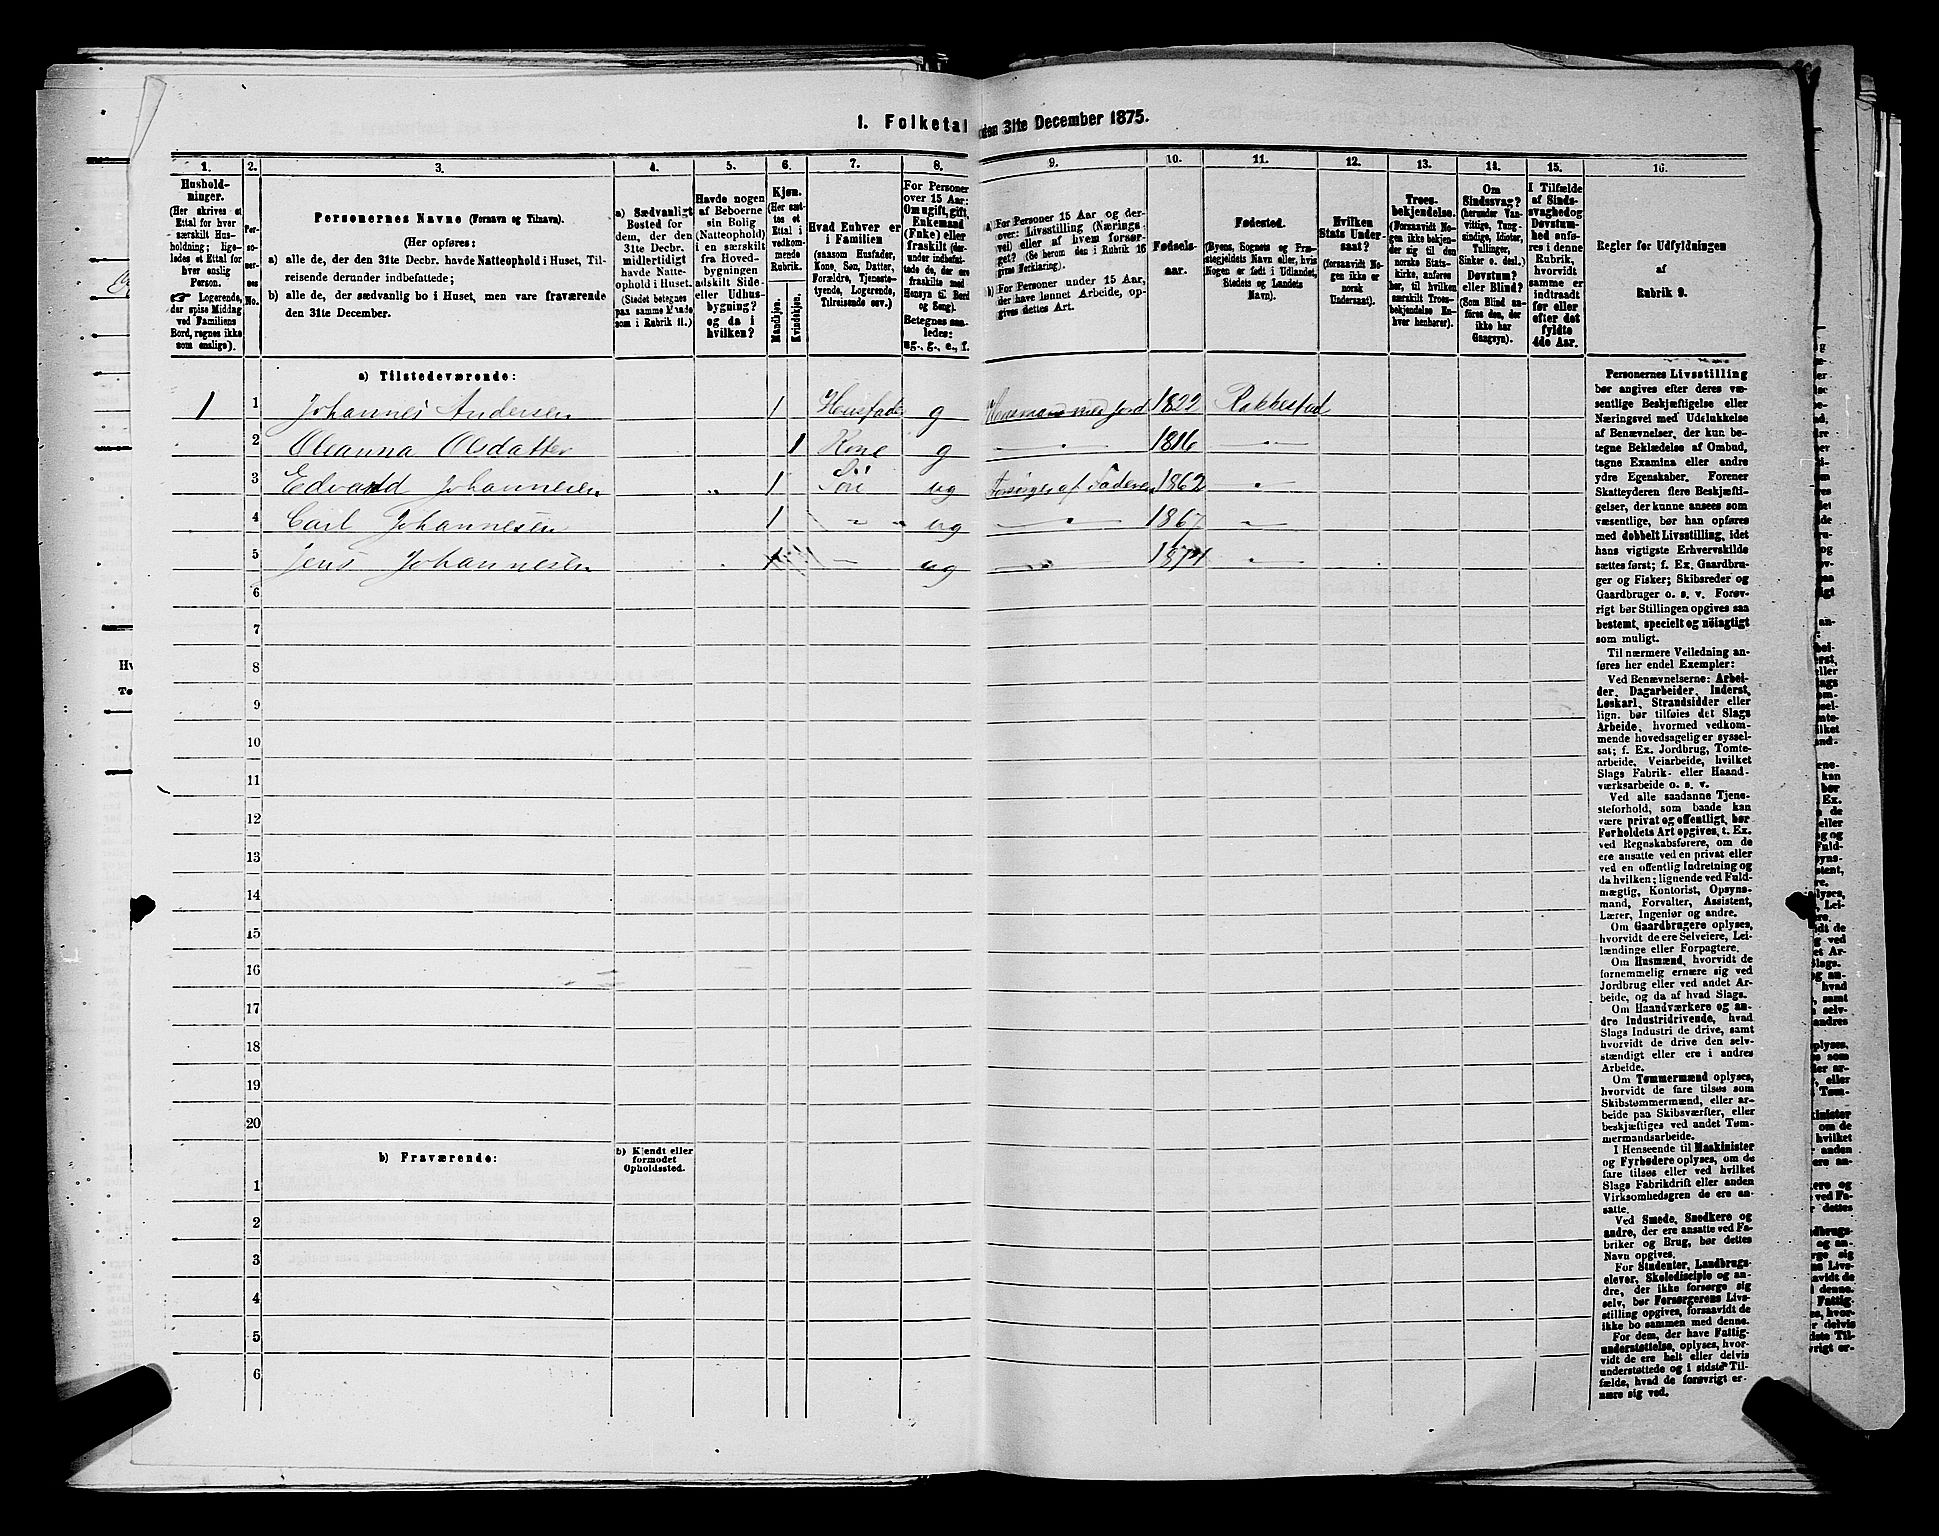 1. Folketal
den 31te December 1875.
1.
2.
3.
4.
5.
6.
7.
8.
9.
10.
11.
12.
13.
14.
15.
16.
Hushold-
ninger.
(Her skrives et
Ettal for hver
særskilt Hus-
holdning; lige-
ledes et Ettal for
hver enslig
Person.
☞ Logerende,
der spise Middag
ved Familiens
Bord, regnes ikke
som enslige).
Per-
so-
ner-
nes
No.
Personernes Navne (Fornavn og Tilnavn).
(Her opføres:
a) alle de, der den 31te Decbr. havde Natteophold i Huset, Til-
reisende derunder indbefattede;
b) alle de, der sædvanlig bo i Huset, men vare fraværende
den 31te December.
a) Sædvanligt
Bosted for
dem, der den
31te Decbr.
midlertidigt
havde Natte-
ophold i Huset.
(Stedet betegnes
paa samme Maade
som i Rubrik 11.)
Havde nogen
af Beboerne
sin Bolig
(Natteophold)
i en særskilt
fra Hoved-
bygningen
adskilt Side-
eller Udhus-
bygning?
og da i
hvilken?
Kjøn.
(Her sæt-
tes et
Ettal i
vedkom-
mende
Rubrik.
Mandkjøn.
Kvindekjøn.
Hvad Enhver er
i Familien
(saasom Husfader,
Kone, Søn, Datter,
Forældre, Tjeneste-
tyende, Logerende,
Tilreisende osv.)
For Personer
over 15 Aar:
Om ugift, gift,
Enkemand
(Enke) eller
fraskilt (der-
under indbefat-
tede de, der ere
fraskilte med
Hensyn til Bord
og Seng).
Betegnes saa-
ledes:
ug., g., e., f.
a) For Personer 15 Aar og der-
over: Livsstilling (Nærings-
vei) eller af hvem forsør-
get? (Se herom den i Rubrik 16
givne Forklaring).
b) For Personer under 15 Aar,
der have lønnet Arbeide, op-
gives dettes Art.
Fødsels-
aar.
Fødested.
(Byens, Sognets og Præ-
stegjeldets Navn eller, hvis
Nogen er født i Udlandet,
Stedets og Landets
Navn).
Hvilken
Stats Under-
saat?
(forsaavidt No-
gen ikke er
norsk
Undersaat).
Troes-
bekjendelse.
(Forsaavidt No-
gen ikke bekjen-
der sig til den
norske Stats-
kirke, anføres
her, til hvilken
særskilt Troes-
bekjendelse En-
hver henhører).
Om
Sindssvag?
(herunder Van-
vittige, Tung-
sindige, Idioter,
Tullinger,
Sinker o. desl.)
Døvstum?
eller Blind?
(Som Blind an-
føres den, der
ikke har
Gangsyn).
I Tilfælde
af Sinds-
svaghed og
Døvstum-
hed anfø-
res i denne
Rubrik,
hvorvidt
samme er
indtraadt
før eller
efter det
fyldte
4de Aar.
Regler for Udfyldningen
af
Rubrik 9.
a) Tilstedeværende:
1 1 Johannes Andersen 1 Husfader g Husmand med Jord 1822 Rakkestad
2 Oleanna Olsdatter 1 Kone g " 1816 "
3 Edvard Johannesen " 1 Søn ug Forsørges af Faderen 1862 "
4 Carl Johannesen 1 " ug " 1867 "
5 Jens Johannesen 1 ug " 1874 "
6
7
8
9
10
11
12
13
14
15
16
17
18
19
20
b) Fraværende:
b) Kjendt eller
formodet
Opholdssted.
1
2
3
4
5
6
Personernes Livsstilling
bør angives efter deres væ-
sentlige Beskjæftigelse eller
Næringsvei med Udelukkelse
af Benævnelser, der kun be-
tegne Beklædelse af Ombud,
tagne Examina eller andre
ydre Egenskaber. Forener
Skatteyderen flere Beskjæfti-
gelser, der kunne ansees som
væsentlige, bør han opføres
med dobbelt Livsstilling, idet
hans vigtigste Erhvervskilde
sættes først; f. Ex. Gaardbru-
ger og Fisker; Skibsreder og
Gaardbruger o. s. v. Forøv-
rigt bør Stillingen opgives saa
bestemt, specielt og nöiagtigt
som muligt.
Til nærmere Veiledning an-
føres her endel Exempler:
Ved Benævnelserne: Arbei-
der, Dagarbeider, Inderst,
Løskarl, Strandsidder eller
lign. bør tilføies det Slags
Arbeide, hvormed vedkom-
mende hovedsagelig er syssel-
sat; f. Ex. Jordbrug, Tomte-
arbeide, Veiarbeide, hvilket
Slags Fabrik- eller Haand-
værksarbeide o. s. v.
Ved alle saadanne Tjene-
steforhold, som baade kan
være privat og offentligt, bør
Forholdets Art opgives, t. Ex.
ved Regnskabsførere, om de
ere ansatte ved en privat eller
ved en offentlig Indretning og
da hvilken; lignende ved Fuld-
mægtig, Kontorist, Opsyns-
mand, Forvalter, Assistent,
Lærer, Ingeniør og andre.
Om Gaardbrugere oplyses,
hvorvidt de ere Selveiere, Lei-
lændinge eller Forpagtere.
Om Husmænd, hvorvidt de
fornemmelig ernære sig ved
Jordbrug eller ved andet Ar-
beide, og da af hvad Slags.
Om Haandværkere og an-
dre Industridrivende, hvad
Slags Industri de drive, samt
hvorvidt de drive den selv-
stændigt eller ere i andres
Arbeide.
Om Tømmermænd oplyses,
hvorvidt de fare tilsøs som
Skibstømmermænd, eller ar-
beide paa Skibsværfter, eller
beskjæftiges ved andet Tøm-
mermandsarbeide.
I Henseende til Maskinister
og Fyrbødere oplyses, om de
fare tilsøs eller ved hvilket
Slags Fabrikdrift eller anden
Virksomhedsgren de ere an-
satte.
Ved Smede, Snedkere og
andre, der ere ansatte ved Fa-
briker og Brug, bør dettes
Navn opgives.
For Studenter, Landbrugs-
elever, Skoledisciple og an-
dre, der ikke forsørge sig
selv, bør Forsørgerens Livs-
stilling opgives, forsaavidt de
ikke bo sammen med denne.
For dem, der have Fattig-
understøttelse, oplyses, hvor-
vidt de ere helt eller delvis
understøttede og i sidste Til-
fælde, hvad de forøvrigt er-
nære sig ved.